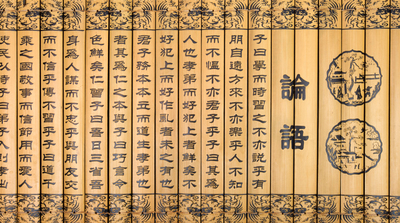 論語
子曰學而時習之不亦説乎有
朋自遠方來不亦樂乎人不知
而不慍不亦君子乎子曰其爲
人也孝弟而好犯上者鮮矣不
好犯上而好作亂者未之有也
君子務本本立而道生孝弟也
者其爲仁之本與子曰巧言令
色鮮矣仁曾子曰吾日三省吾
身爲人謀而不忠乎與朋友交
而不信乎傳不習乎子曰道千
乘之國敬事而信節用而愛人
民以時子曰弟子入則孝出